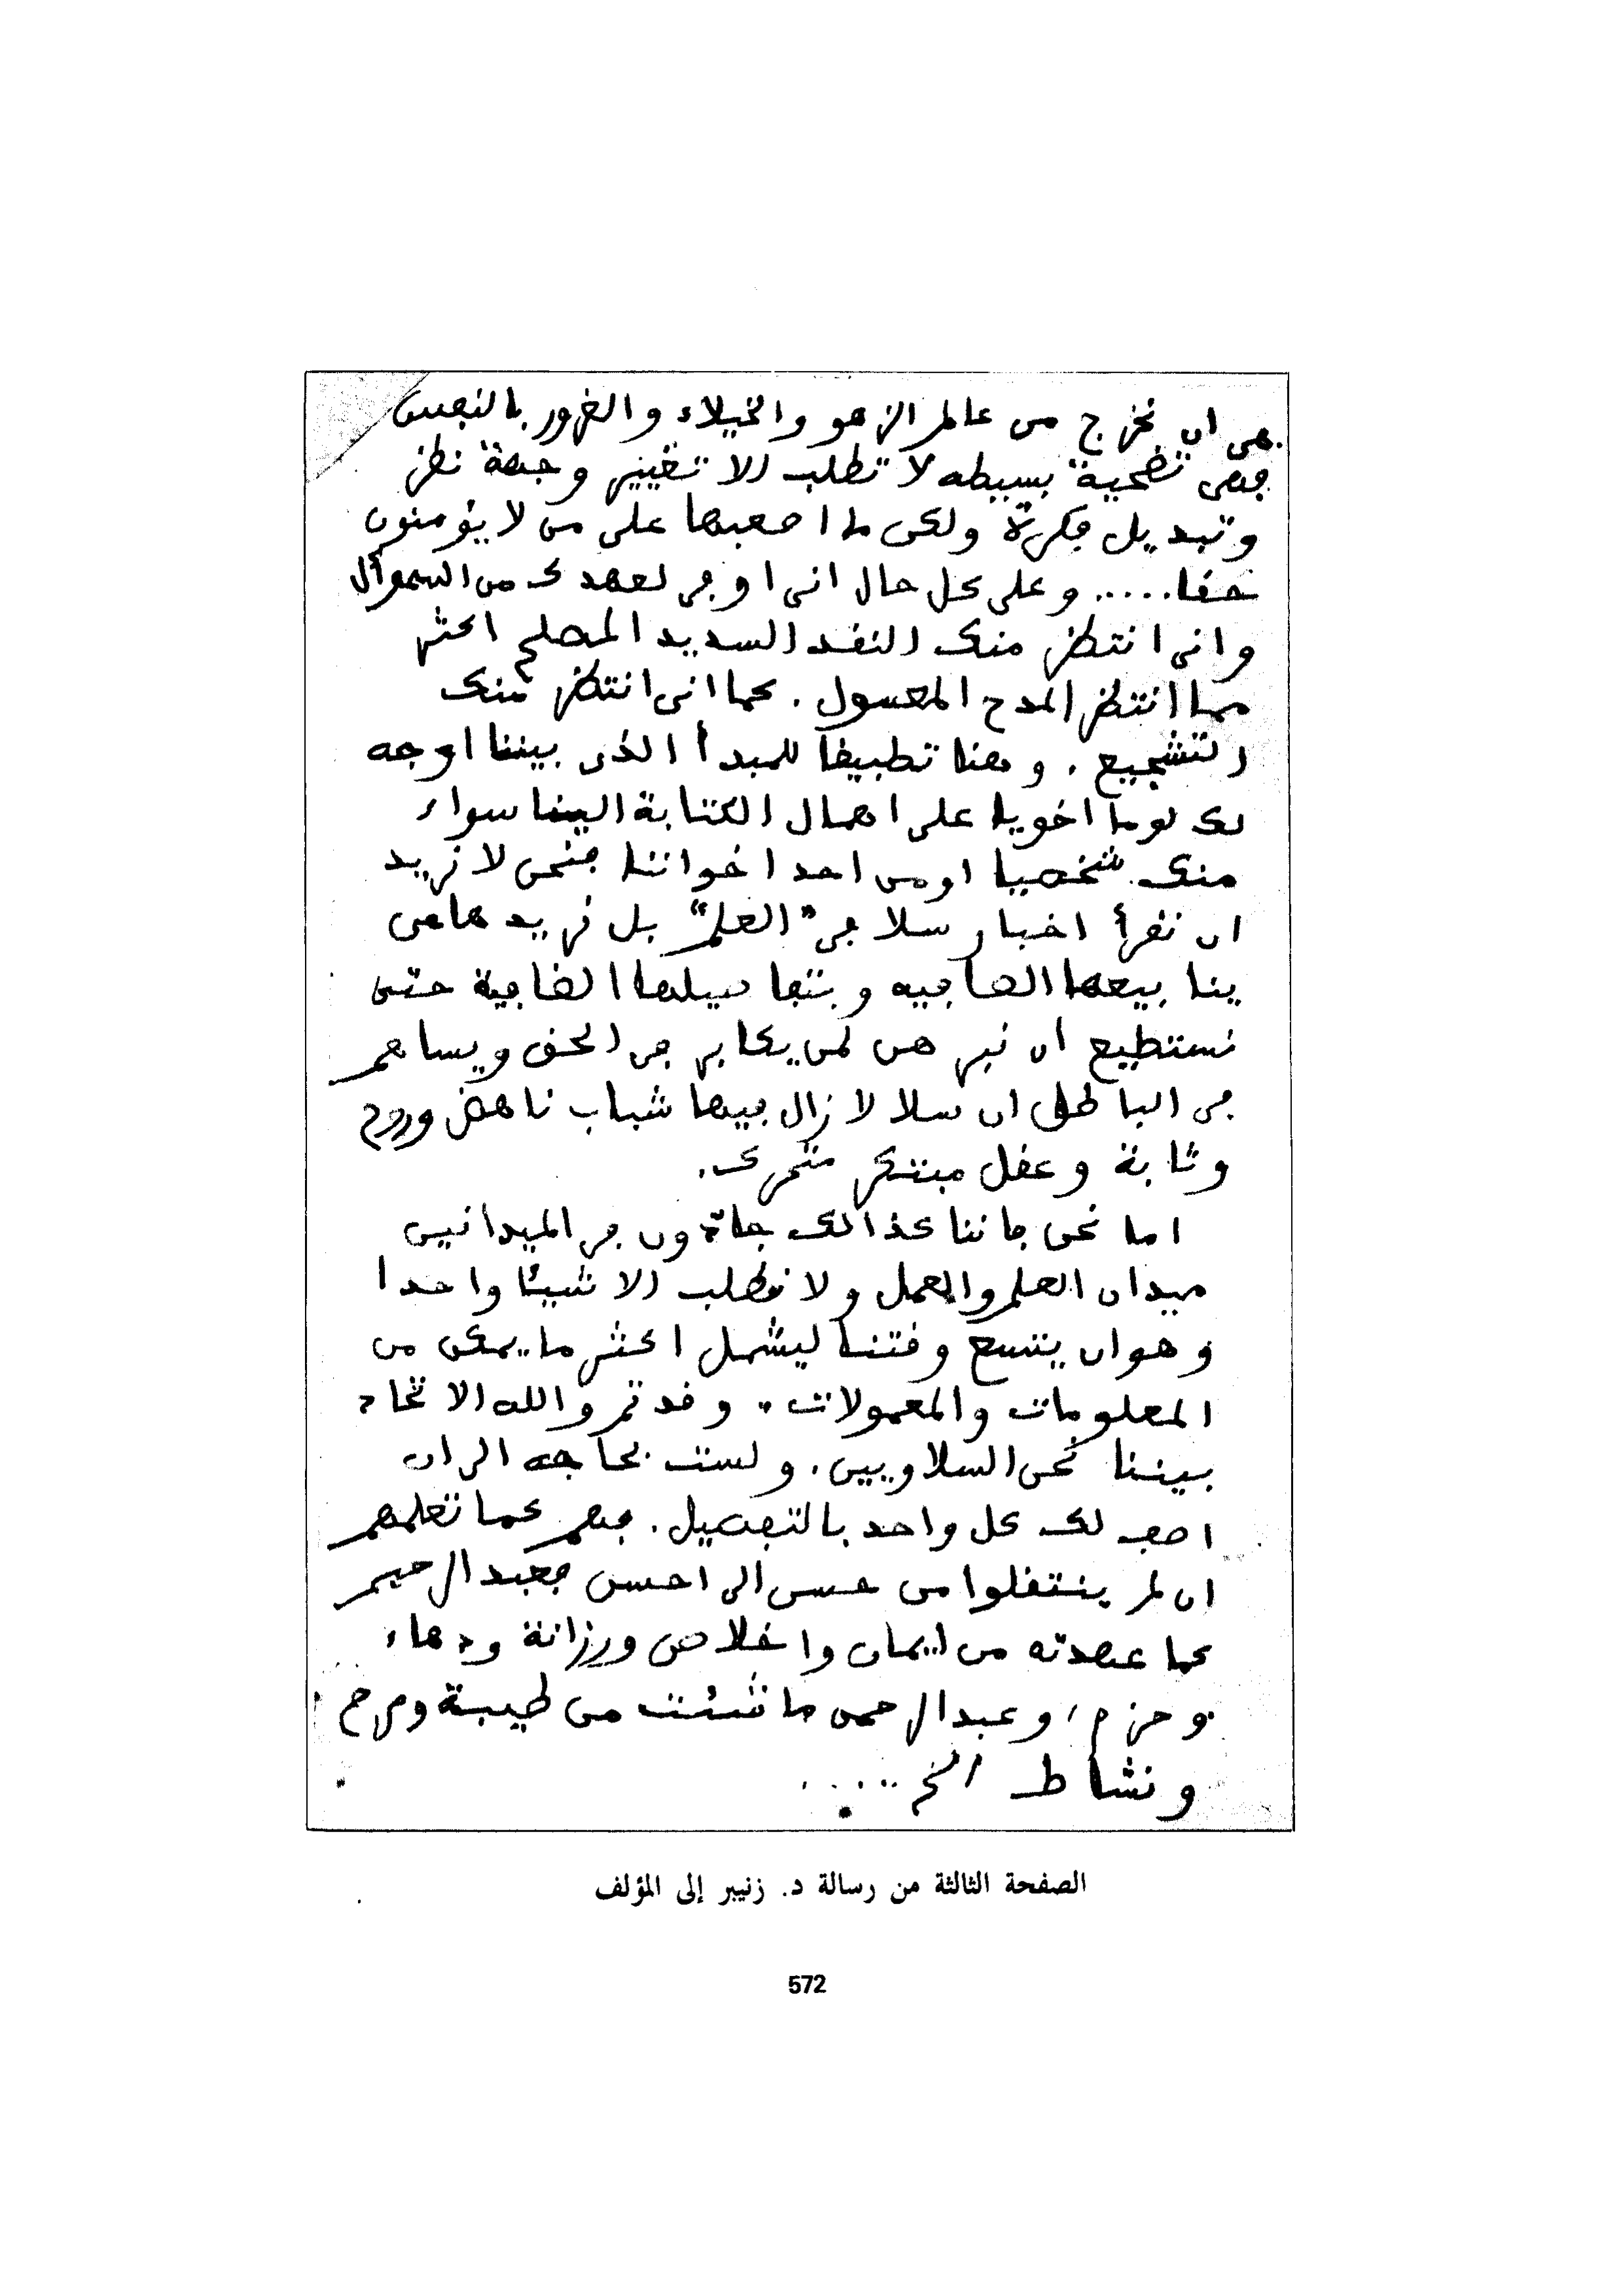 هى ان نخرج من عالم الزهو والخيلاء والغرور بالنفس
فهى تضحية بسيطه لا تطلب الا تغيير وجهة نظر
وتبديل فكرة ولكن ما اصعبها على من لا يؤمنون
حقا..... وعلى كل حال انى اوفى لعهدك من السموأل
وانى انتظر منك النقد السديد المصلح اكثر
مما انتظر المدح المعسول. كما انى انتظر منك
التشجيع. وهنا تطبيقا للمبدأ الذى بيننا اوجه
لك لوما اخويا على اهمال الكتابة الينا سواء
منك شخصيا او من احد اخواننا فنحن لا نريد
ان نقرأ اخبار سلا فى "العلم" بل نريدها من
ينابيعها الصافيه وبتفاصيلها الضافية حتى
نستطيع ان نبرهن لمن يكابر فى الحق ويساهم
فى الباطل ان سلا لا زال فيها شباب ناهض وروح
وثابة وعقل مبتكر متحرك.
اما نحن فاننا كذالك جادون فى الميدانين
ميدان العلم والعمل ولا نطلب الا شيئا واحدا
وهو ان يتسع وقتنا ليشمل اكثر ما يمكن من
المعلومات والمعمولات. وقد تم والله الاتحاد
بيننا نحن السلاويين. ولست بحاجه الى ان
اصف لك كل واحد بالتفصيل. فهم كما تعلمهم
ان لم ينتقلوا من حسن الى احسن فعبد الرحيم
كما عهدته من ايمان واخلاص ورزانة ودهاء
وحزم، وعبد الرحمن ما شئت من طيبة ومرح
ونشاط الخ .....
الصفحة الثالثة من رسالة د. زنيبر إلى المؤلف
572